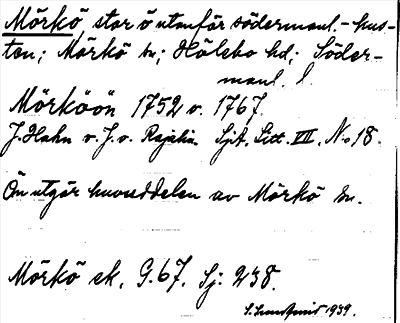 Mörkö, stor ö utanför södermanl.-kus-
ten; Mörkö sn; Hölebo hd; Söder-
manl. l.
Mörköön 1752 o. 1767.
J. Hahn v. J. v. Rajalin. Sjk. Litt. VII. No 18.
Ön utgör huvuddelen av Mörkö sn.
Mörkö ek. G. 67. Sj: 238.
1939.